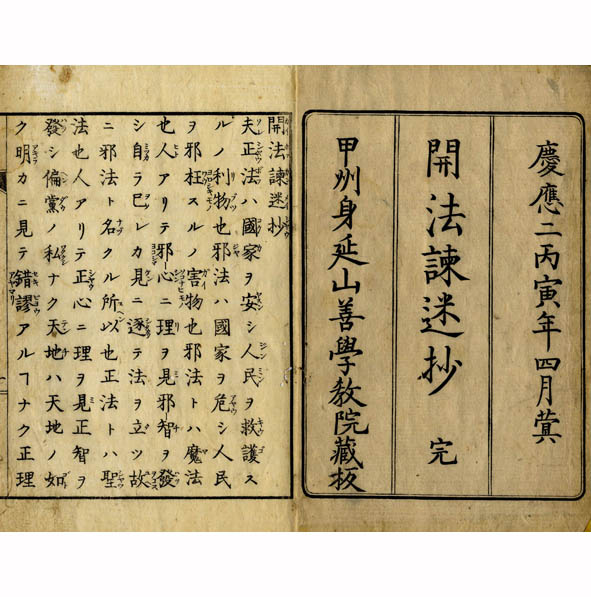 慶應二丙寅年四月蓂
開法諫迷抄 完
甲州身延山善學教院藏板
開法諫迷抄
夫正法ハ國家ヲ安シ人民ヲ救護ス
ルノ利物也邪法ハ國家ヲ危シ人民
ヲ邪枉スルノ害物也邪法トハ魔法
也人アリテ邪心ニ理ヲ見邪智ヲ發
シ自ラ巳レカ見ニ逐テ法ヲ立ツ故
ニ邪法ト名クル所以也正法トハ聖
法也人アリテ正心ニ理ヲ見正智ヲ
發シ偏黨ノ私ナク天地ハ天地ノ如
ク明カニ見テ錯謬アルヿナク正理